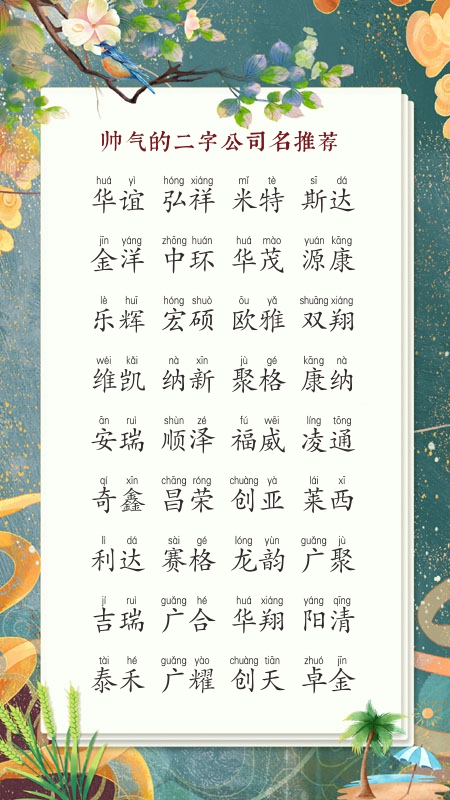 帅气的二字公司名推荐
huá yì hóng xiáng mǐ tè sī dá
华谊 弘祥 米特 斯达
jīn yáng zhōng huán huá mào yuán kāng
金洋 中环 华茂 源康
lè huī hóng shuò ōu yǎ shuāng xiáng
乐辉 宏硕 欧雅 双翔
wéi kǎi nà xīn jù gé kāng nà
维凯 纳新 聚格 康纳
ān ruì shùn zé fú wēi líng tōng
安瑞 顺泽 福威 凌通
qí xīn chāng róng chuàng yà lái xī
奇鑫 昌荣 创亚 莱西
lì dá sài gé lóng yùn guǎng jù
利达 赛格 龙韵 广聚
jí ruì guǎng hé huá xiáng yáng qīng
吉瑞 广合 华翔 阳清
tài hé guǎng yào chuàng tiān zhuó jīn
泰禾 广耀 创天 卓金